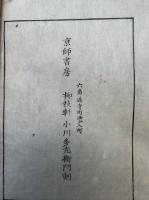 京師書房
六角通寺町西ヘ入町
柳枝軒 小川多左衛門刻